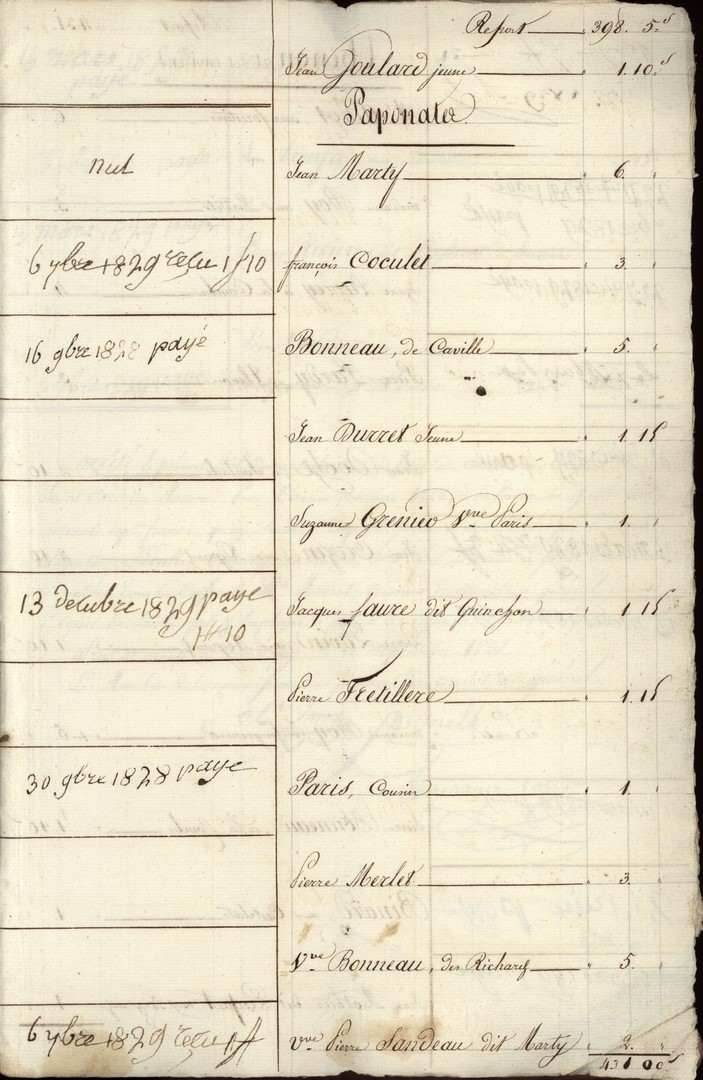 Report 398. 5.s
Jean Goulard jeune 1. 10.s
Paponater
nul Jean Marty 6. "
6 ybre 1829 reçu 1f 10 françois Coculet 3. "
16 gbre 1828 payé Bonneau, de Caville 5. "
Jean Durret Jeune 1. 15
Suzanne Grenier Vve Paris 1. "
13 decubre 1829 paye Jacques faure dit Guinchon 1. 15
1# 10
Pierre Fretillere 1. 15
30 gbre 1828 paye Paris, Cousin 1. "
Pierre Merlet 3. "
Vve Bonneau, des Richard 5. "
6 ybre 1829 reçu 1# vve Pierre Sandeau dit Marty 2. "
431 00s